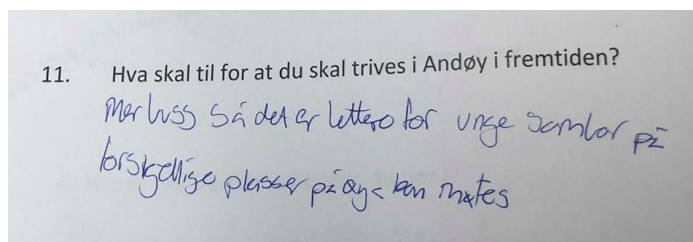 11. Hva skal til for at du skal trives i Andøy i fremtiden?
Mer buss så det er lettere for unge som bor på
forskjellige plasser på øya kan møtes